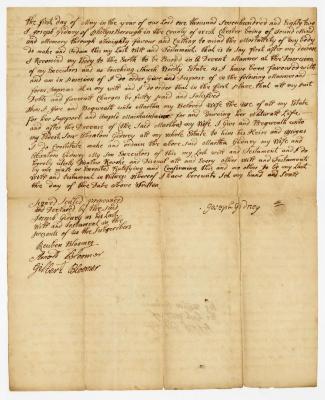 The first Day of May in the year of our Lord one thousand Sevenhundred and Eighty
I Joseph Gidney of Philipsborough in the County of West Chester being of Sound Mind
and Memory through almighty favour and Calling to mind the Mortallity of my body
do make and Ordain this my Last Will and Testament that is to Say first after my decease
I Recomend my Body to the Earth to be Buried in a Decent Manner at the Discresion
of my Executors and as touching Such Worldly State as I have been favoured with
and am in Possession of I do order give and Dispose of in the following Manner and
form, Imprimis it is my will and I do order that in the first place that all my Just
Debts and funeral Charges be fully paid and Satisfied
Item I Give and Bequeath unto Martha my Beloved Wife the Use of all my State
for her Support and maintainance for and During her Natural Life
and after the Decease of the Said Martha my Wife I Give and Bequeath unto
my Son Gidney all my whole State to him his Heirs and Assigns
I Do Constitute make and ordain the above said Martha Gidney my Wife and
Gidney my Son Executors of this my Last Will and Testament and I do
hereby Utterly Revoke and Disanul all and Every other Will and Testament
by me made or Executed Ratifying and Confirming this and no other to be my Last
Will and Testament in Witness Whereof I have hereunto Set my hand and Seale
the day of the Date above Written
Signed Sealed pronounced
and Declared by the said
Joseph Gidney as his Last
Will and Testament in the
presents of us the Subscribers
Joseph Gidney
Reuben Bloomer
Bloomer
Gilbert Bloomer